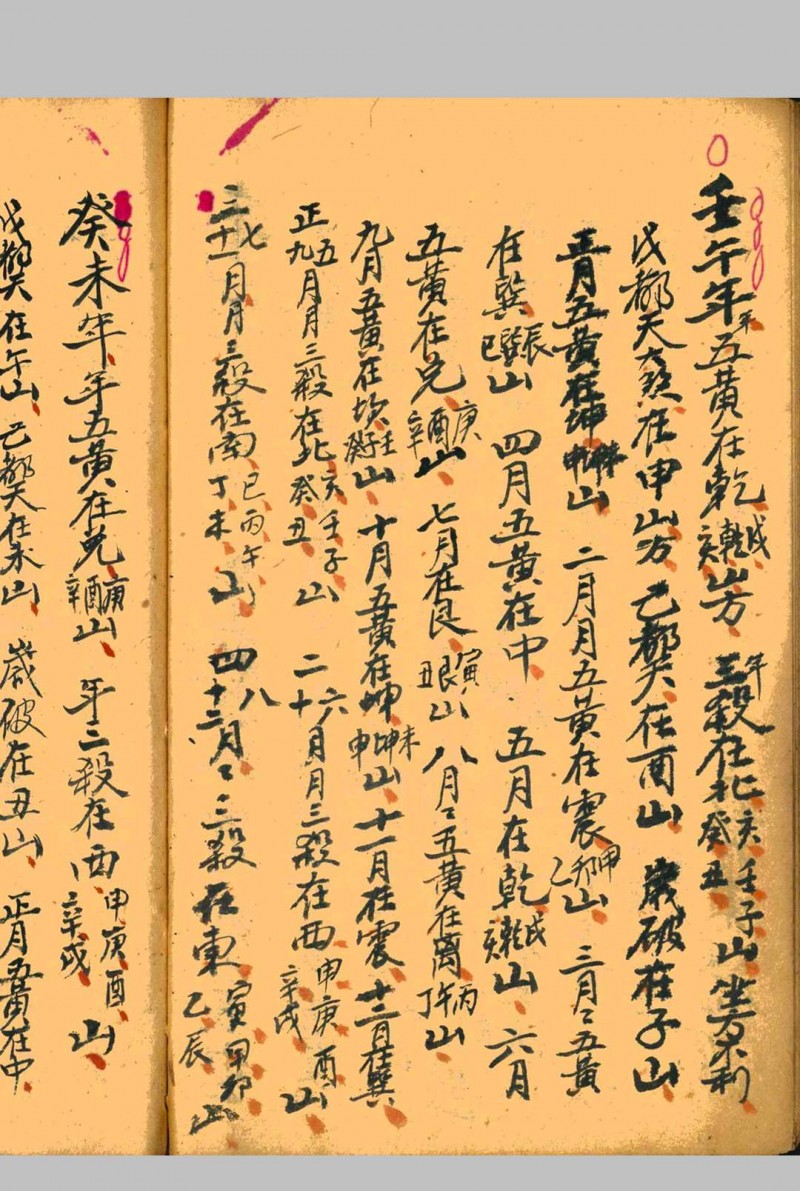 壬午年年五黃在乾戌乾亥山方年三殺在北亥壬子癸丑山坐方不利
戊都天大煞在申山方己都天在酉山歲破在子山
正月五黃在坤山二月月五黃在震甲卯乙山三月〻五黃
在巽辰巽巳山四月五黃在中五月在乾戌乾亥山六月
五黃在兌庚酉辛山七月在艮寅艮丑山八月〻五黃在離丙午丁山
九月五黃在坎壬子癸山十月五黃在坤未坤申山十一月在震十二月在巽
正五九月月三殺在北亥壬子癸丑山二六十月月三殺在西申庚酉辛戌山
三七十一月月三殺在南巳丙午丁未山四八十二月〻三殺在東寅甲卯乙辰山
癸未年年五黃在兌庚酉辛山年三殺在西申庚酉辛戌山
戊都天在午山己都天在未山歲破在丑山正月五黃在中